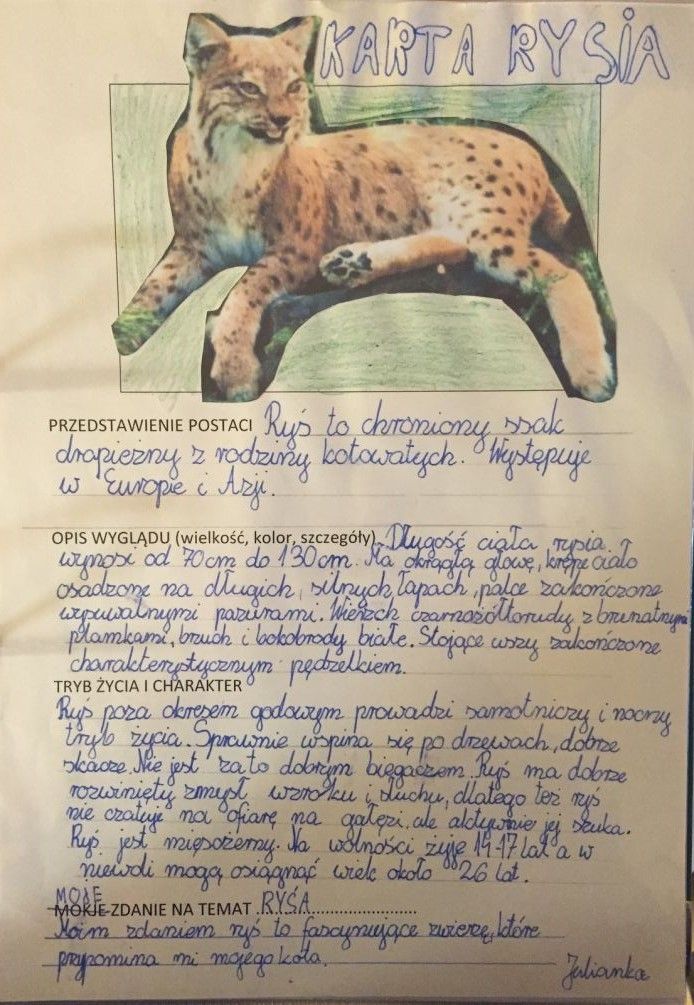 KARTA RYSIA
PRZEDSTAWIENIE POSTACI Ryś to chroniony ssak
drapieżny z rodziny kotowatych. Występuje
w Europie i Azji.
OPIS WYGLĄDU (wielkość, kolor, szczegóły) Długość ciała rysia
wynosi od 70cm do 130cm. Ma okrągłą głowę, krępe ciało
osadzone na długich, silnych łapach, palce zakończone
wysuwalnymi pazurami. Wierzch czarnożółtorudy z brunatnymi
plamkami, brzuch i bokobrody białe. Stojące uszy zakończone
charakterystycznym pędzelkiem.
TRYB ŻYCIA I CHARAKTER
Ryś poza okresem godowym prowadzi samotniczy i nocny
tryb życia. Sprawnie wspina się po drzewach, dobrze
skacze. Nie jest za to dobrym biegaczem. Ryś ma dobrze
rozwinięty zmysł wzroku i słuchu, dlatego też ryś
nie czatuje na ofiarę na gałęzi, ale aktywnie jej szuka.
Ryś jest mięsożerny. Na wolności żyje 14-17 lat a w
niewoli mogą osiągnąć wiek około 26 lat.
MOJE
MOKJE ZDANIE NA TEMAT RYSIA
Moim zdaniem ryś to fascynujące zwierzę, które
przypomina mi mojego kota.
Julianka